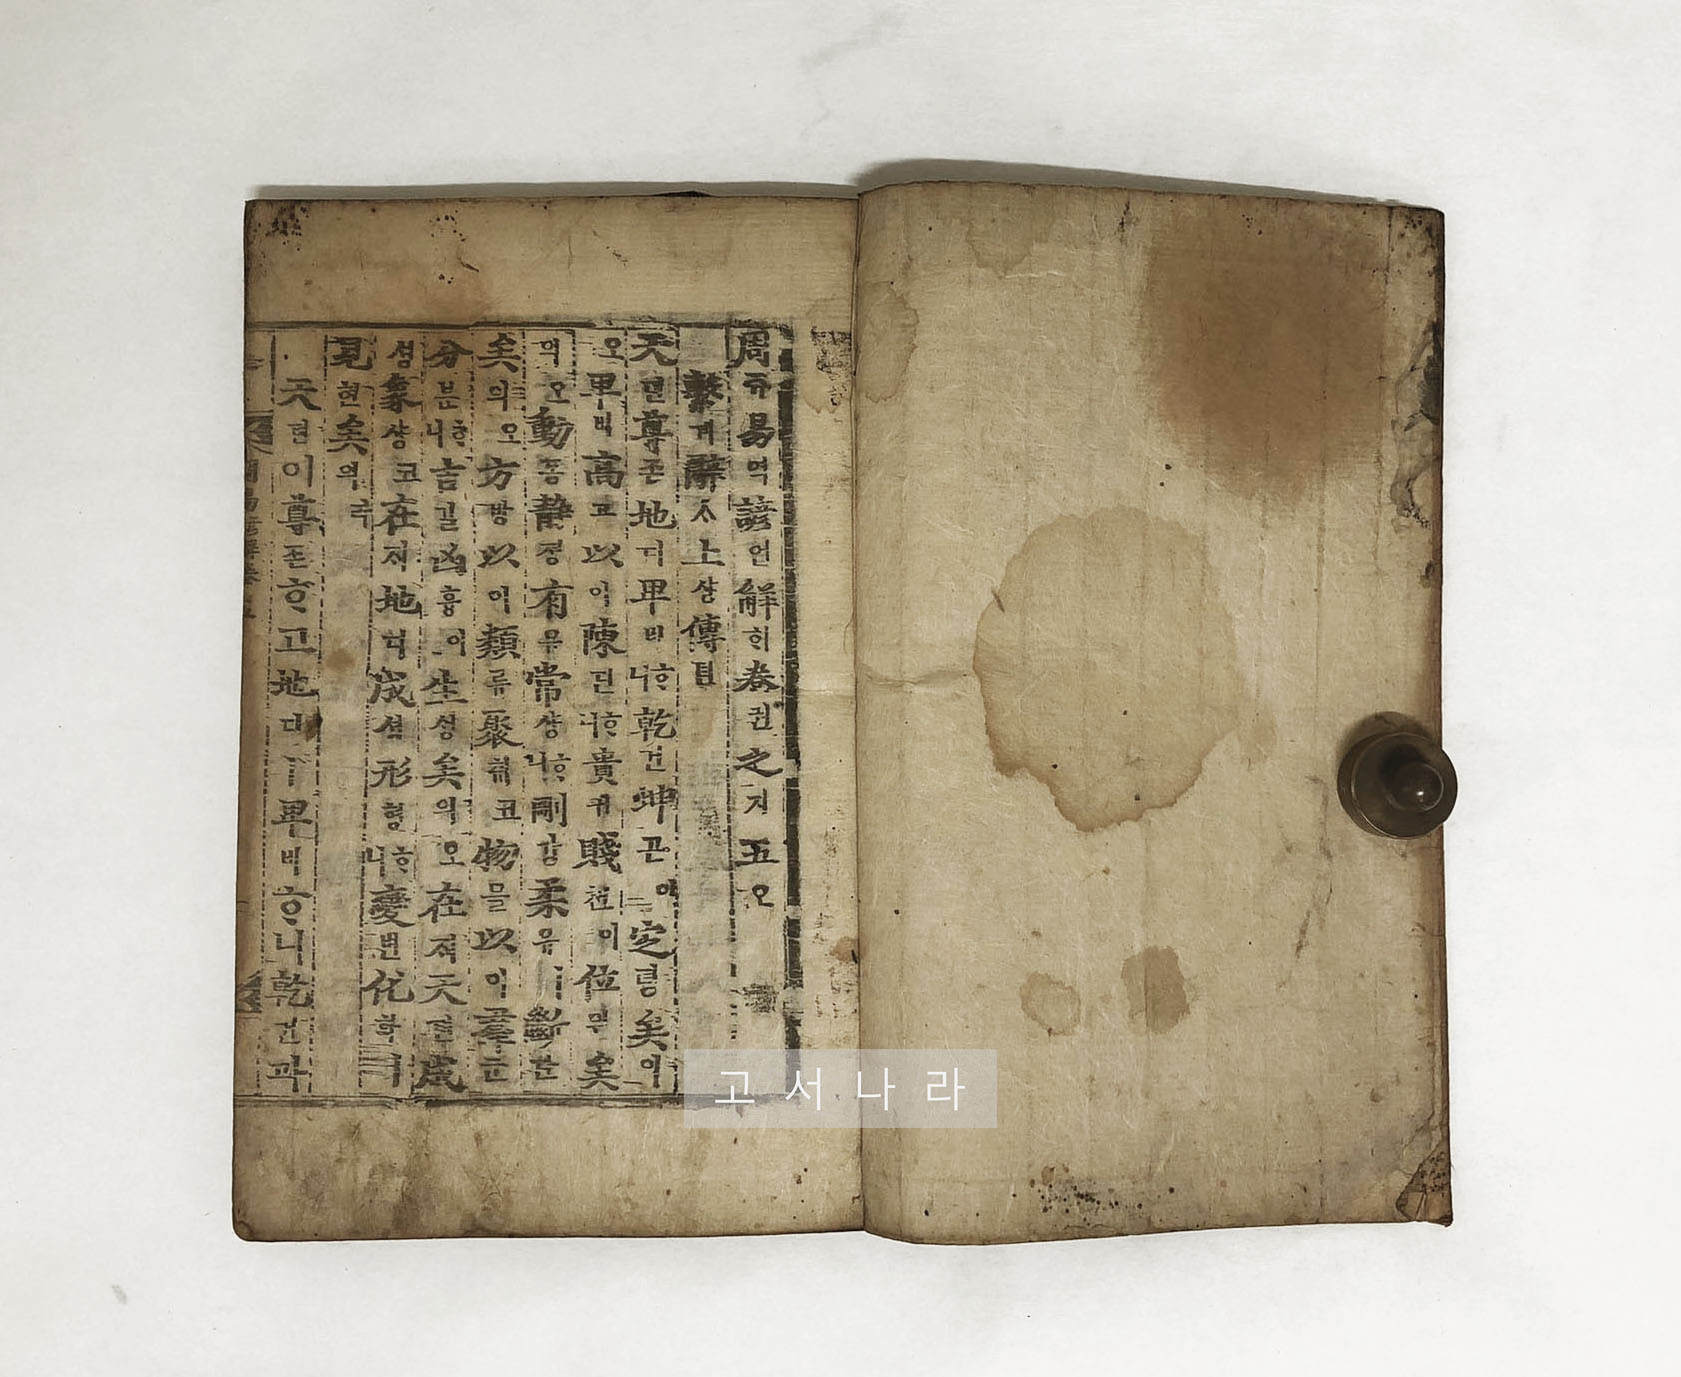 周쥬易역諺언解ᄒᆡ卷권之지五오
繫계辭ᄉᆞ上샹傳뎐
天텬尊존地디卑비ᄒᆞ니乾건坤곤이定뎡矣의
오卑비高고以이陳딘ᄒᆞ니貴귀賤쳔이位위矣
의오動동靜졍有유常샹ᄒᆞ니剛강柔유ㅣ斷단
矣의오方방以이類류聚췌코物믈以이羣군
分분ᄒᆞ니吉길凶흉이生ᄉᆡᆼ矣의오在ᄌᆡ天텬成
셩象샹코在ᄌᆡ地디成셩形형ᄒᆞ니變변化화ㅣ
見현矣의라
天텬이尊존ᄒᆞ고地디ㅣ卑비ᄒᆞ니乾건과
고서나라